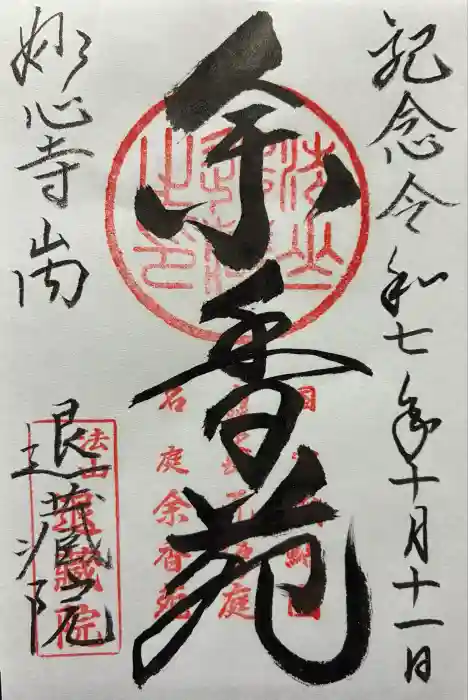 記念令和七年十月十一日
余香苑
妙心寺山内
退蔵院
名庭余香苑
法山退蔵院